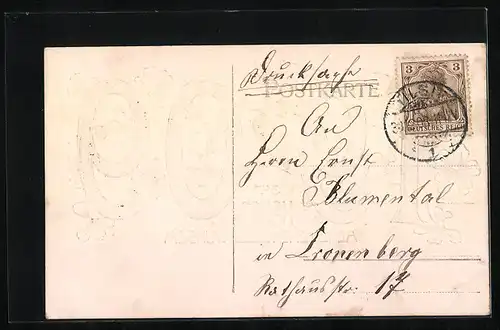 Drucksache
POSTKARTE
3 3
DEUTSCHES REICH
TILSIT
1
An
Herrn Ernst
Blumental
in Cronenberg
Rathausstr. 17